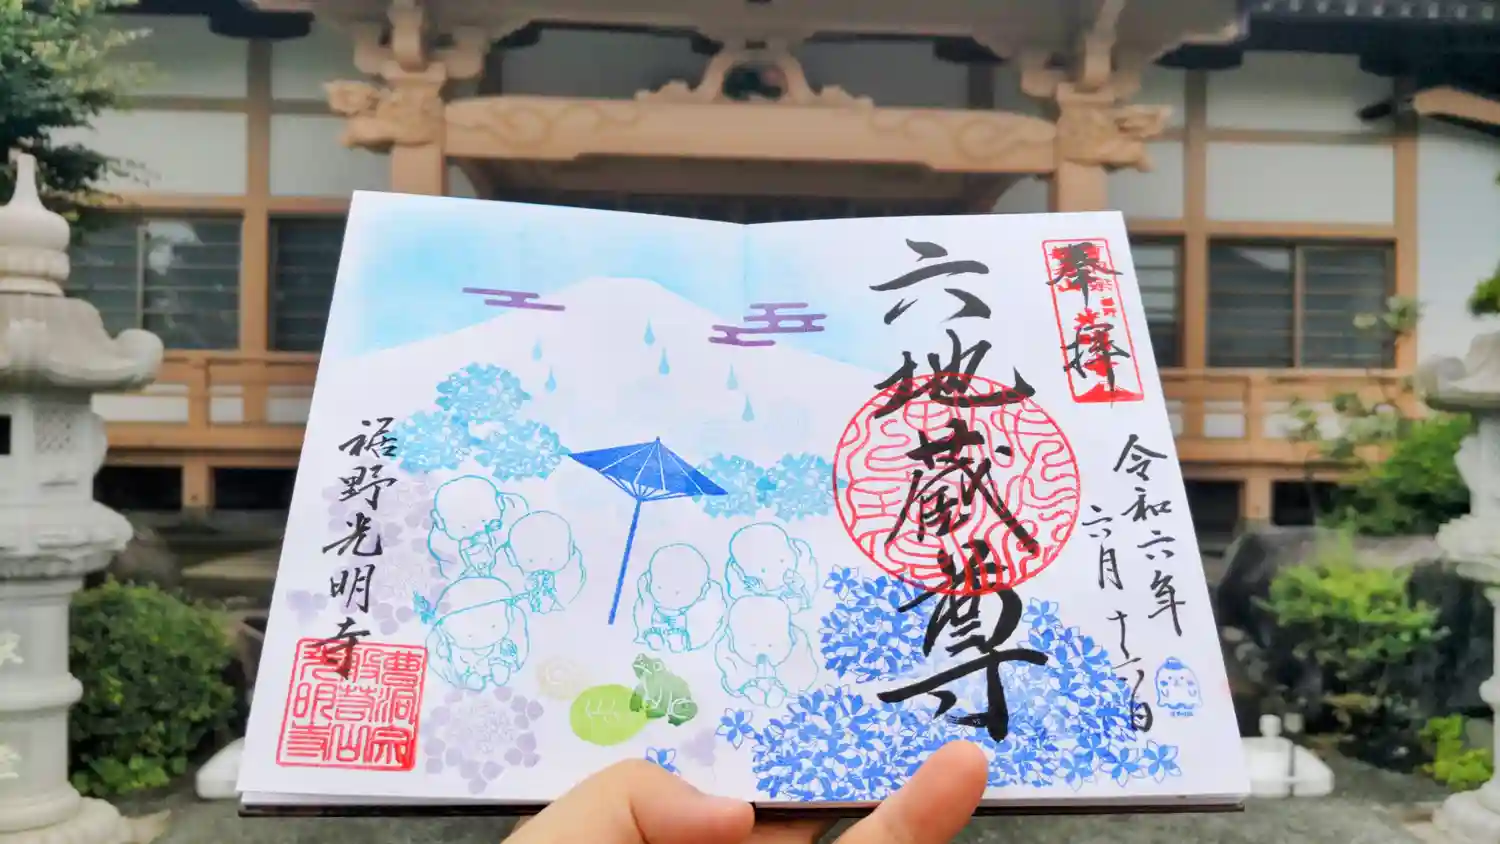 奉拝
六地蔵尊
令和六年
六月十六日
裾野光明寺
曹洞宗
般若山
光明寺